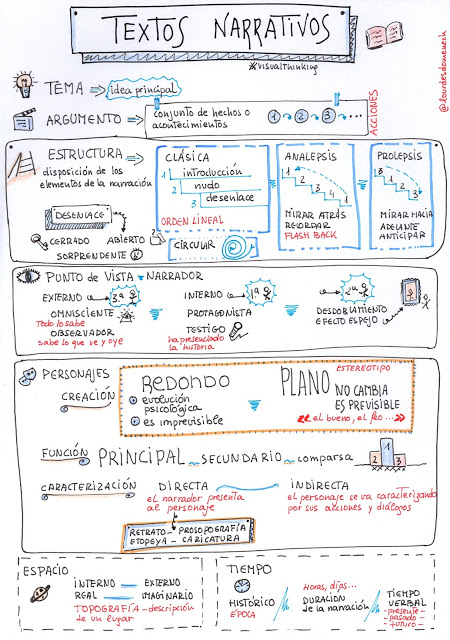 TEXTOS NARRATIVOS
#visualthinking
@lourdesdomenech
TEMA idea principal
ARGUMENTO conjunto de hechos o
acontecimientos
1 2 3 ...
ACCIONES
ESTRUCTURA
disposición de los
elementos de la narración
DESENLACE
CERRADO ABIERTO
SORPRENDENTE
CLÁSICA
1 introducción
2 nudo
3 desenlace
ORDEN LINEAL
CIRCULAR
ANALEPSIS
1
2
3
4 1
MIRAR ATRÁS
RECORDAR
FLASH BACK
PROLEPSIS
3
1
2
3
MIRAR HACIA
ADELANTE
ANTICIPAR
PUNTO DE VISTA NARRADOR
EXTERNO 3ª
OMNISCIENTE
Todo lo sabe
OBSERVADOR
sabe lo que ve y oye
INTERNO 1ª
PROTAGONISTA
TESTIGO
ha presenciado
la historia
2ª
DESDOBLAMIENTO
EFECTO ESPEJO
PERSONAJES
CREACIÓN
REDONDO
evolución
psicológica
es imprevisible
ESTEREOTIPO
PLANO NO CAMBIA
ES PREVISIBLE
el bueno, el feo...
FUNCIÓN PRINCIPAL SECUNDARIO comparsa
2 1 3
CARACTERIZACIÓN DIRECTA INDIRECTA
el narrador presenta
al personaje
el personaje se va caracterizando
por sus acciones y diálogos
RETRATO - PROSOPOGRAFÍA
ETOPEYA - CARICATURA
ESPACIO
INTERNO EXTERNO
REAL IMAGINARIO
TOPOGRAFÍA - descripción
de un lugar
TIEMPO
HISTÓRICO
ÉPOCA
Horas, días...
DURACIÓN
de la narración
TIEMPO
VERBAL
- presente -
- pasado -
- futuro -